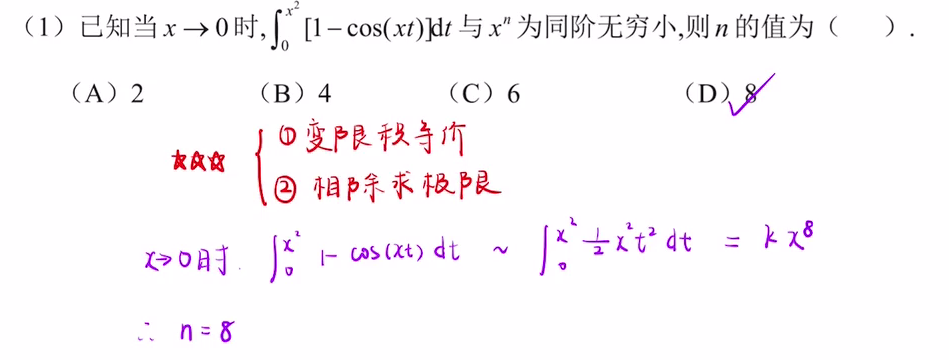 （1）已知当 x → 0 时, ∫₀^{x²} [1 − cos(xt)]dt 与 xⁿ 为同阶无穷小,则 n 的值为（　　）.
（A）2　（B）4　（C）6　（D）8
☆☆☆ ① 变限积等价
② 相除求极限
x→0时. ∫₀^{x²} 1- cos(xt) dt ~ ∫₀^{x²} ½x²t² dt = k x⁸
∴ n = 8